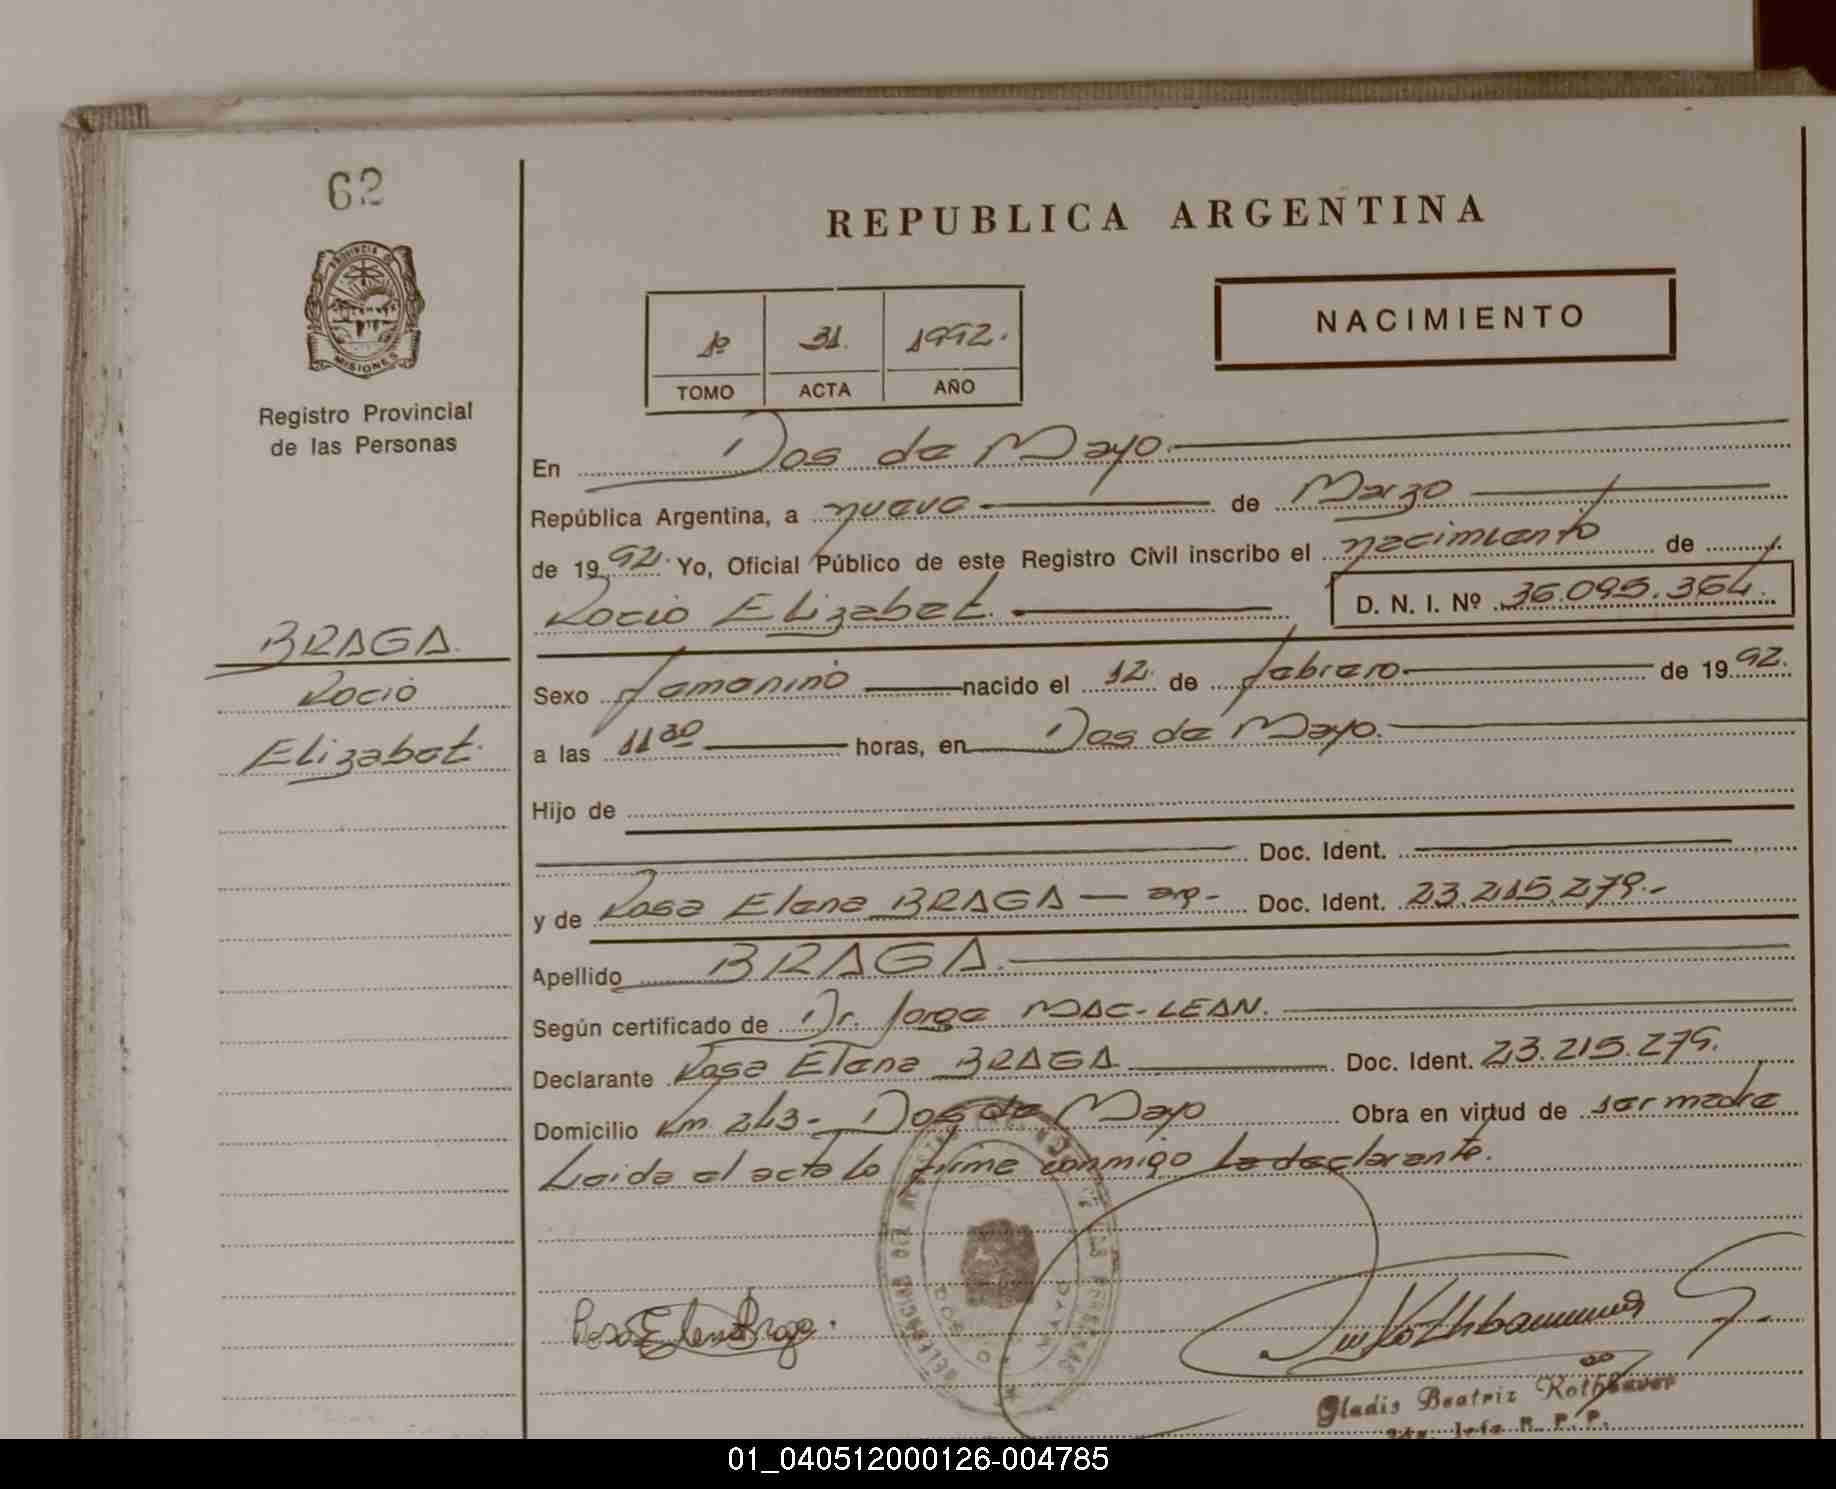 62
REPUBLICA ARGENTINA
PROVINCIA DE
MISIONES
Registro Provincial
de las Personas
1º 31. 1992.
TOMO ACTA AÑO
NACIMIENTO
En Dos de Mayo.
República Argentina, a nueve de Marzo
de 1992. Yo, Oficial Público de este Registro Civil inscribo el nacimiento de
Rocio Elizabet. D. N. I. Nº 36.095.364.
BRAGA.
Rocio
Elizabet.
Sexo femenino nacido el 12. de febrero de 1992.
a las 11 30 horas, en Dos de Mayo.
Hijo de
Doc. Ident.
y de Rosa Elena BRAGA — arg.- Doc. Ident. 23.215.279.-
Apellido BRAGA.
Según certificado de Dr. Jorge MAC-LEAN.
Declarante Rosa Elena BRAGA Doc. Ident. 23.215.279.
Domicilio Km 243- Dos de Mayo Obra en virtud de ser madre
Leida el acta lo firma conmigo la declarante.
DOS DE MAYO
Rosa Elena Braga.
Gladis Beatriz
R. P. P.
01_040512000126-004785